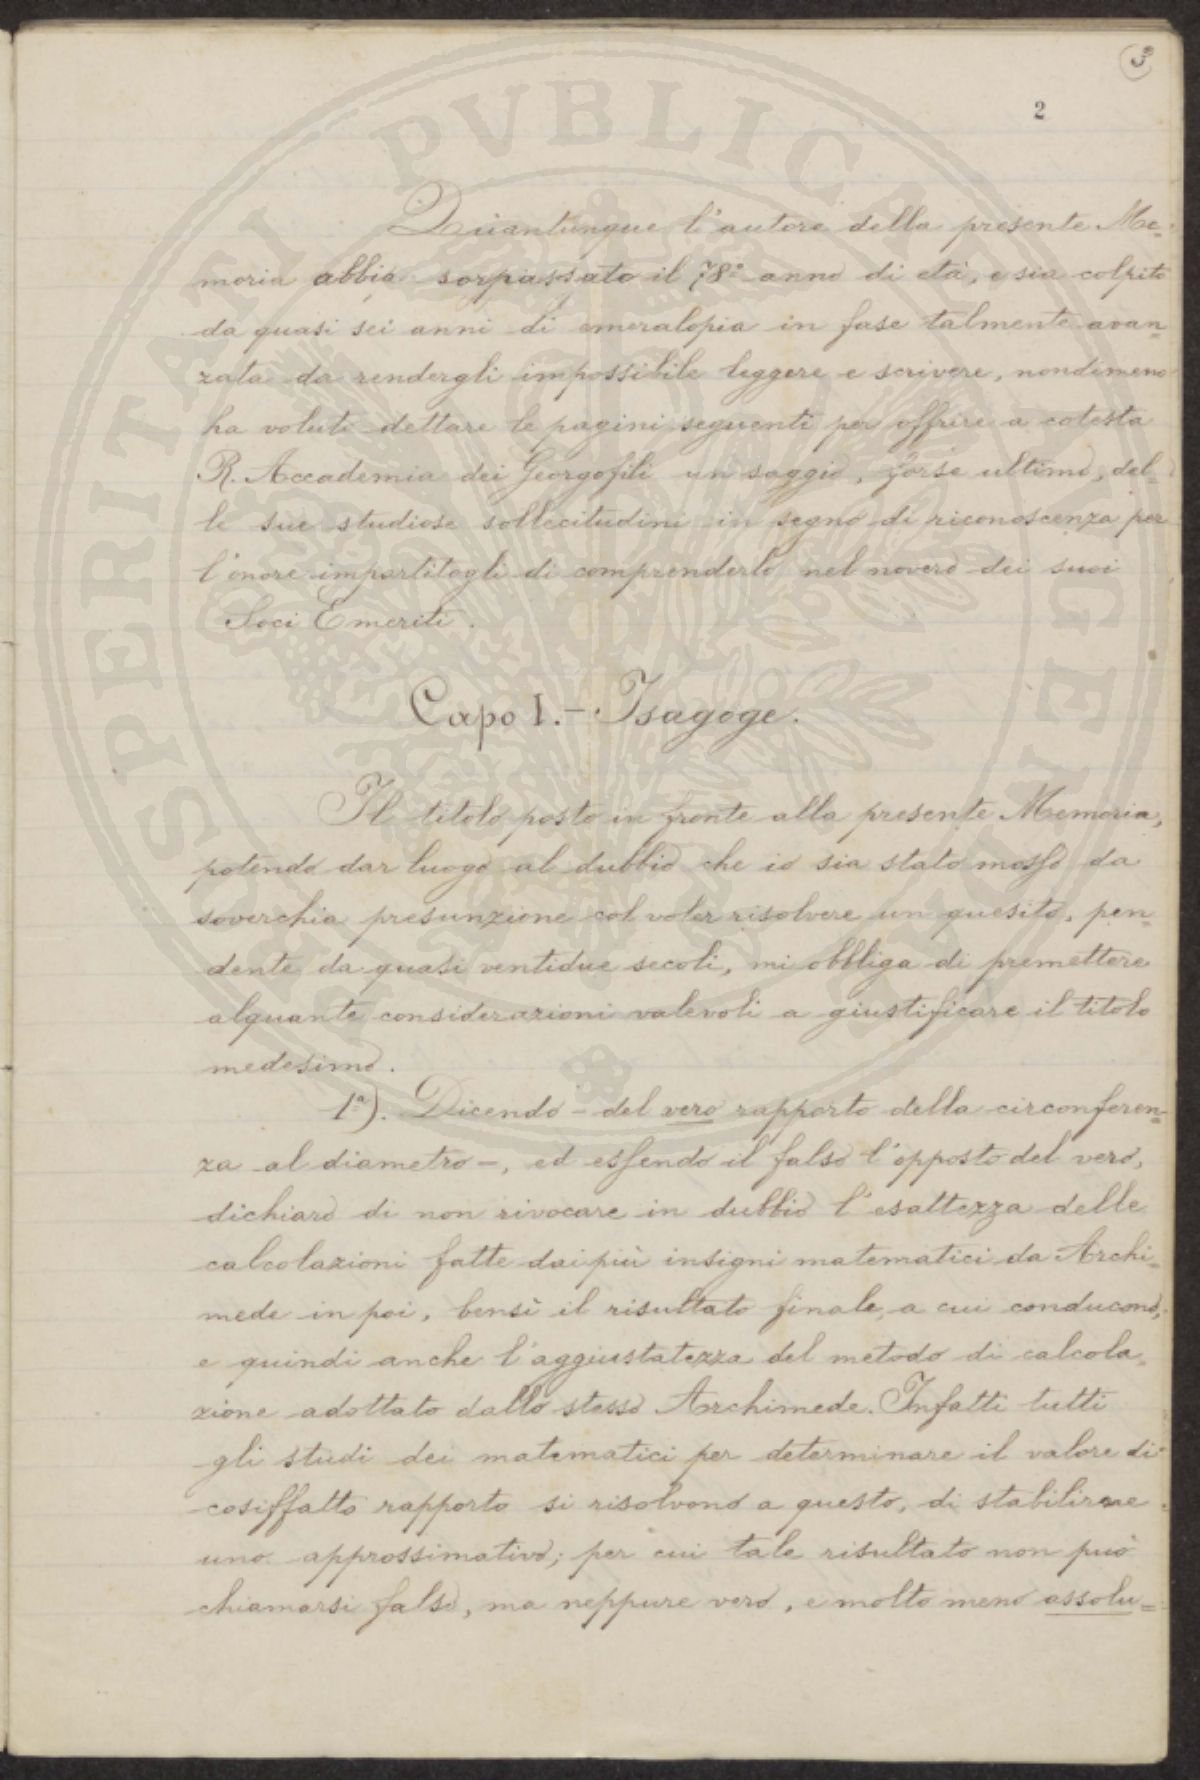 3
2
Quantunque l'autore della presente Me=
moria abbia sorpassato il 78° anno di età, e sia colpito
da quasi sei anni di emeralopia in fase talmente avan=
zata da rendergli impossibile leggere e scrivere, nondimeno
ha voluto dettare le pagini seguenti per offrire a cotesta
R. Accademia dei Georgofili un saggio, forse ultimo, del=
le sue studiose sollecitudini in segno di riconoscenza per
l'onore impartitogli di comprenderlo nel novero dei suoi
Soci Emeriti.
Capo I. – Isagoge.
Il titolo posto in fronte alla presente Memoria,
potendo dar luogo al dubbio che io sia stato mosso da
soverchia presunzione col voler risolvere un quesito, pen=
dente da quasi ventidue secoli, mi obbliga di premettere
alquante considerazioni valevoli a giustificare il titolo
medesimo.
1ª). Dicendo – del vero rapporto della circonferen=
za al diametro –, ed essendo il falso l'opposto del vero,
dichiaro di non rivocare in dubbio l'esattezza delle
calcolazioni fatte dai più insigni matematici da Archi=
mede in poi, bensì il risultato finale, a cui conducono,
e quindi anche l'aggiustatezza del metodo di calcola=
zione adottato dallo stesso Archimede. Infatti tutti
gli studi dei matematici per determinare il valore di
cosiffatto rapporto si risolvono a questo, di stabilirne
uno approssimativo; per cui tale risultato non può
chiamarsi falso, ma neppure vero, e molto meno assolu=
SPERITATI PVBLICAE AVGENDAE